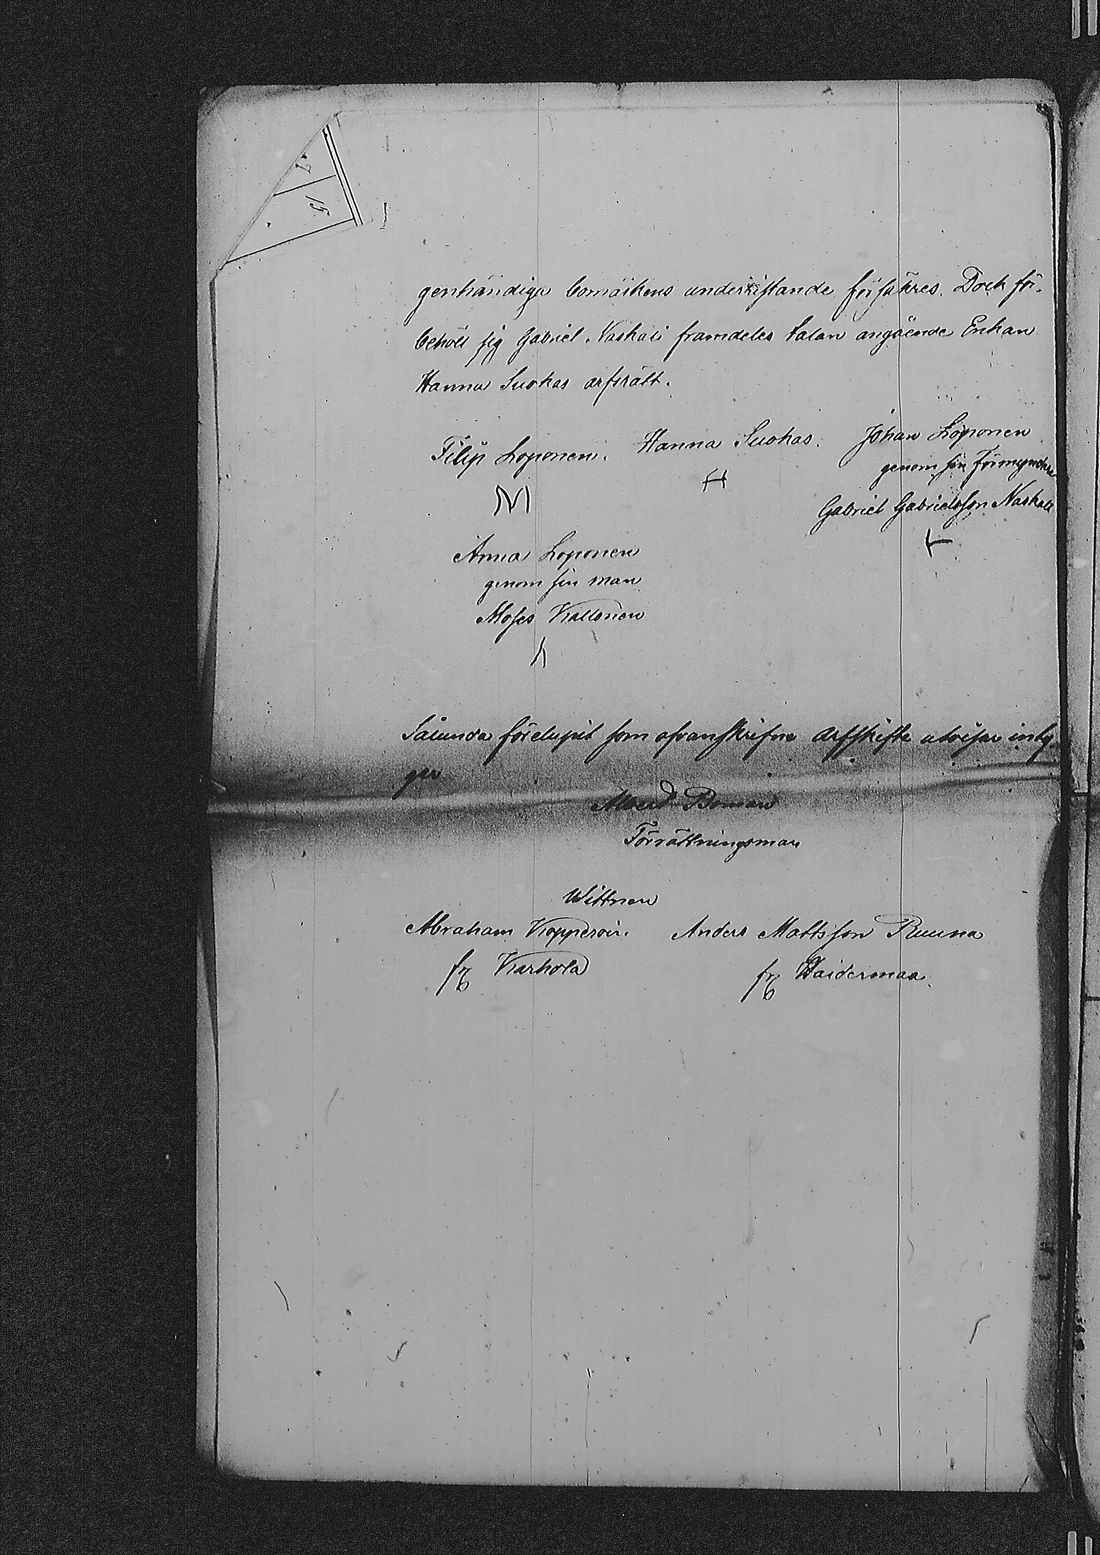 15.
genhändiga bomärkens underristande försäkres. Dock för-
behöll sig Gabriel Naskali framdeles talan angående Enkan
Hanna Suokas arfsrätt.
Filip Loponen. Hanna Suokas. Johan Loponen
genom sin Förmyndare
Gabriel Gabrielsson Naskali
Anna Loponen
genom sin man
Moses Kallonen
Sålunda förelupit som ofvanskrifne arfskifte utvisar inty-
gar
Alfred Boman
Förrättningsman
Wittnen
Abraham Kopperoin. Anders Mattsson Ruuna
fr Karhola fr Haidermaa.